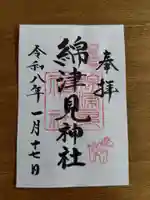 奉拝
綿津見神社
令和八年一月十七日